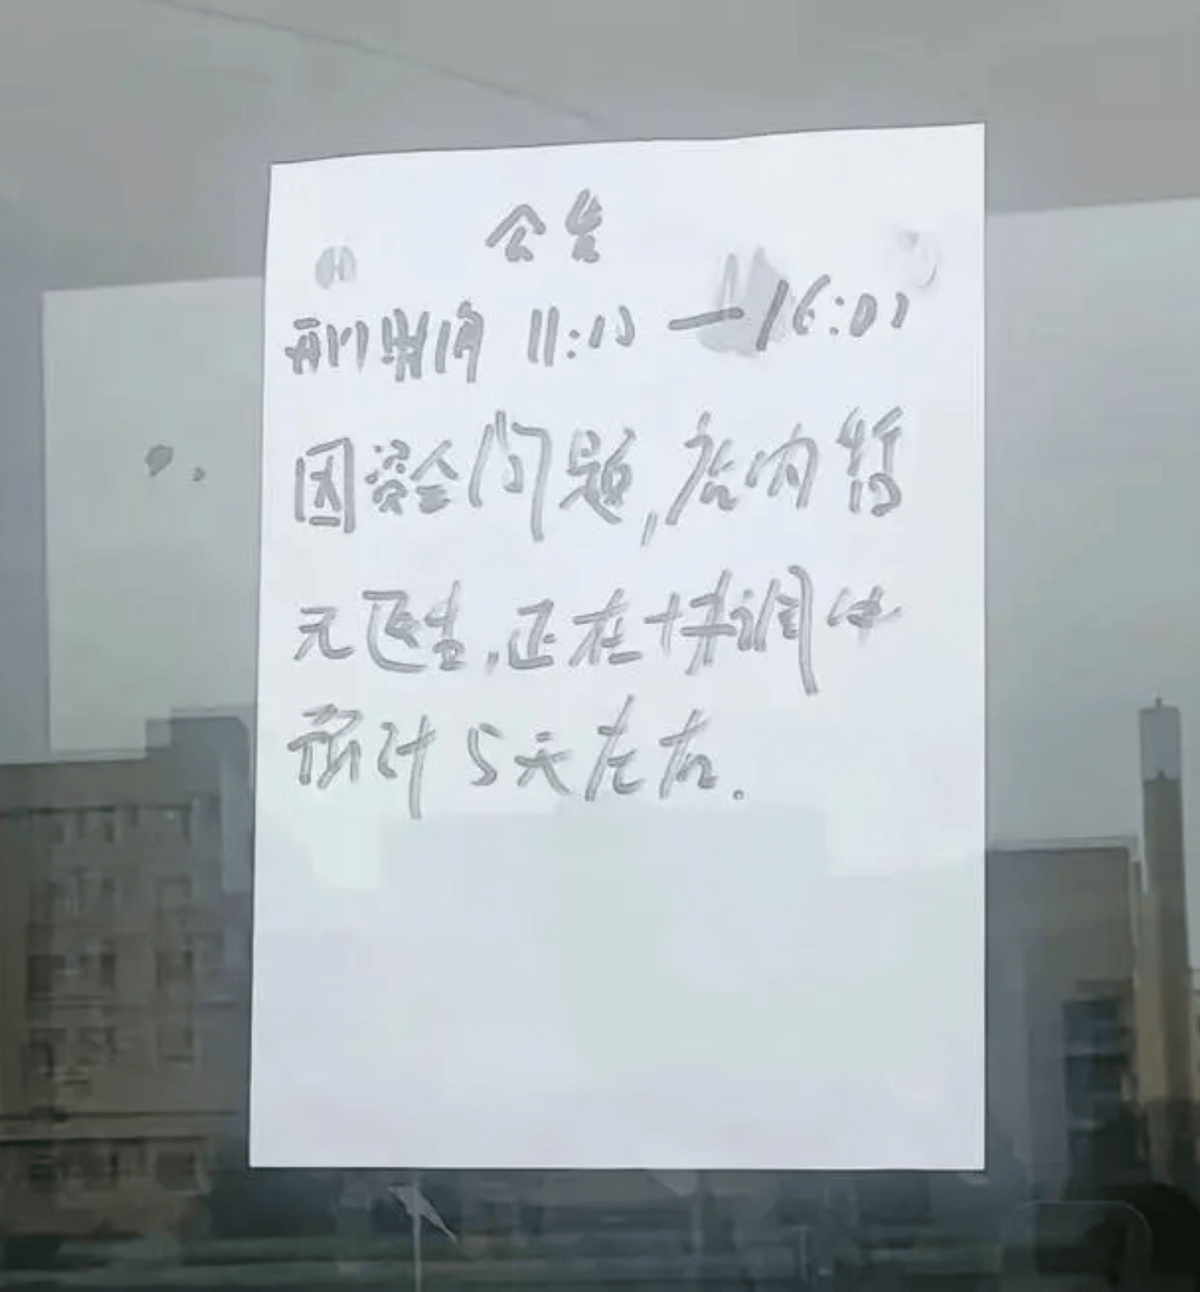 公告
开门时间 11:00—16:00
因资金问题,店内暂
无医生,正在协调中
预计5天左右.